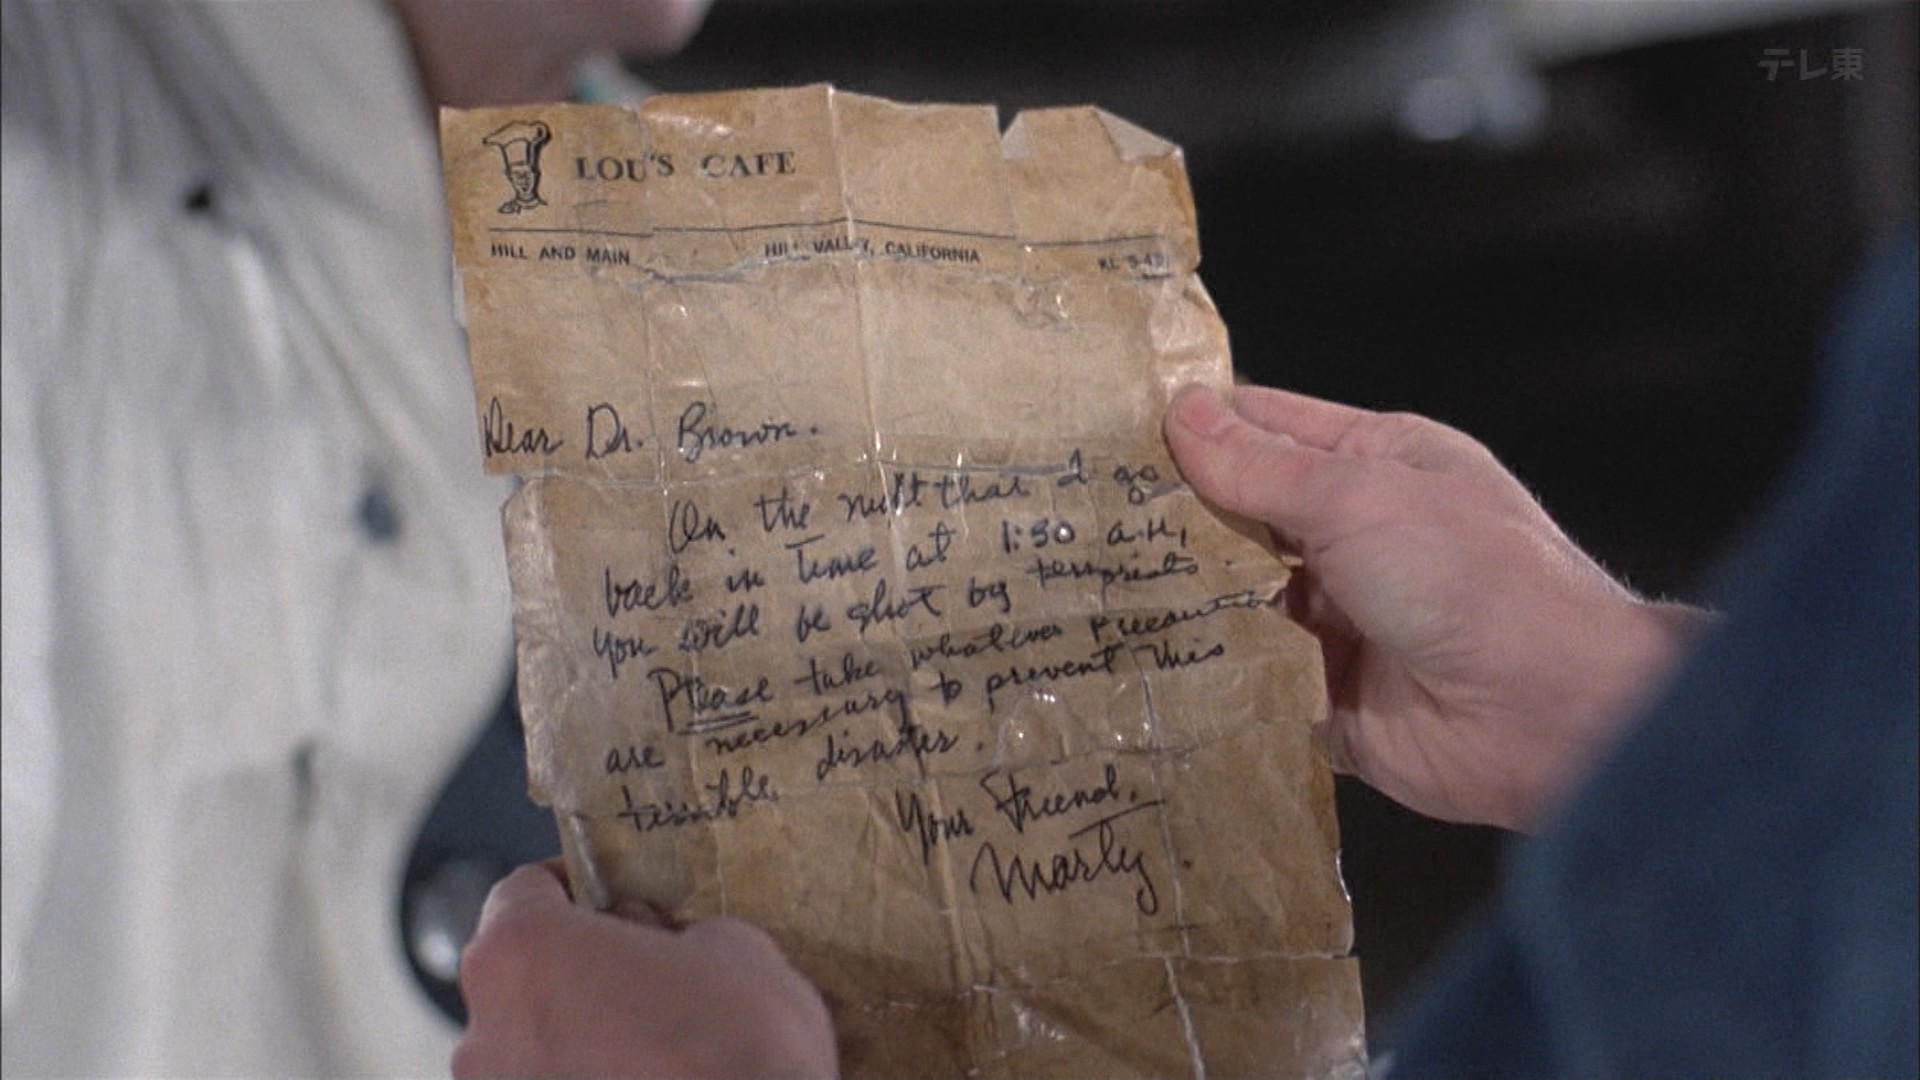 テレ東
LOU'S CAFE
HILL AND MAIN HILL VALLEY, CALIFORNIA KL 5-42
Dear Dr. Brown.
On the ni t that I go
back in time at 1:30 a.m,
you will be shot by terrorists.
Please take whatever precautio
are necessary to prevent this
terrible disaster.
Your Friend.
Marty.